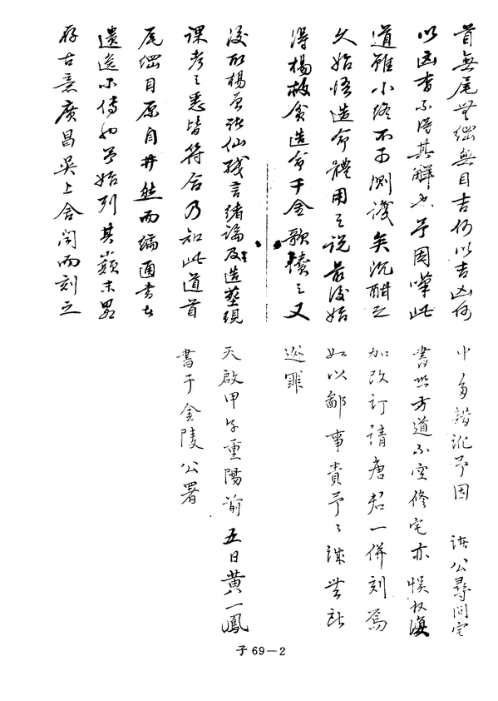 首無尾無綱無目吉何以吉凶何
以凶杳不得其解也予因嘆此
道雖小終不可測淺矣沉酣之
久始悟造命體用之說最後始
得楊救貧造命千金歌讀之又
後取楊曾諸仙殘言緒論及造塟現
課考之悉皆符合乃知此道首
尾綱目原自井然而編通書者
遺逸不傳也予始列其巔末畧
存古意廣昌吳上舍聞而刻之
中多錯訛予因 諸公尋問
書然方道不空修宅亦悞故復
加改訂請唐君一併刻焉
如以鄙事責予予無所
逃罪
天啟甲子重陽前五日黃一鳳
書于金陵公署
子69－2